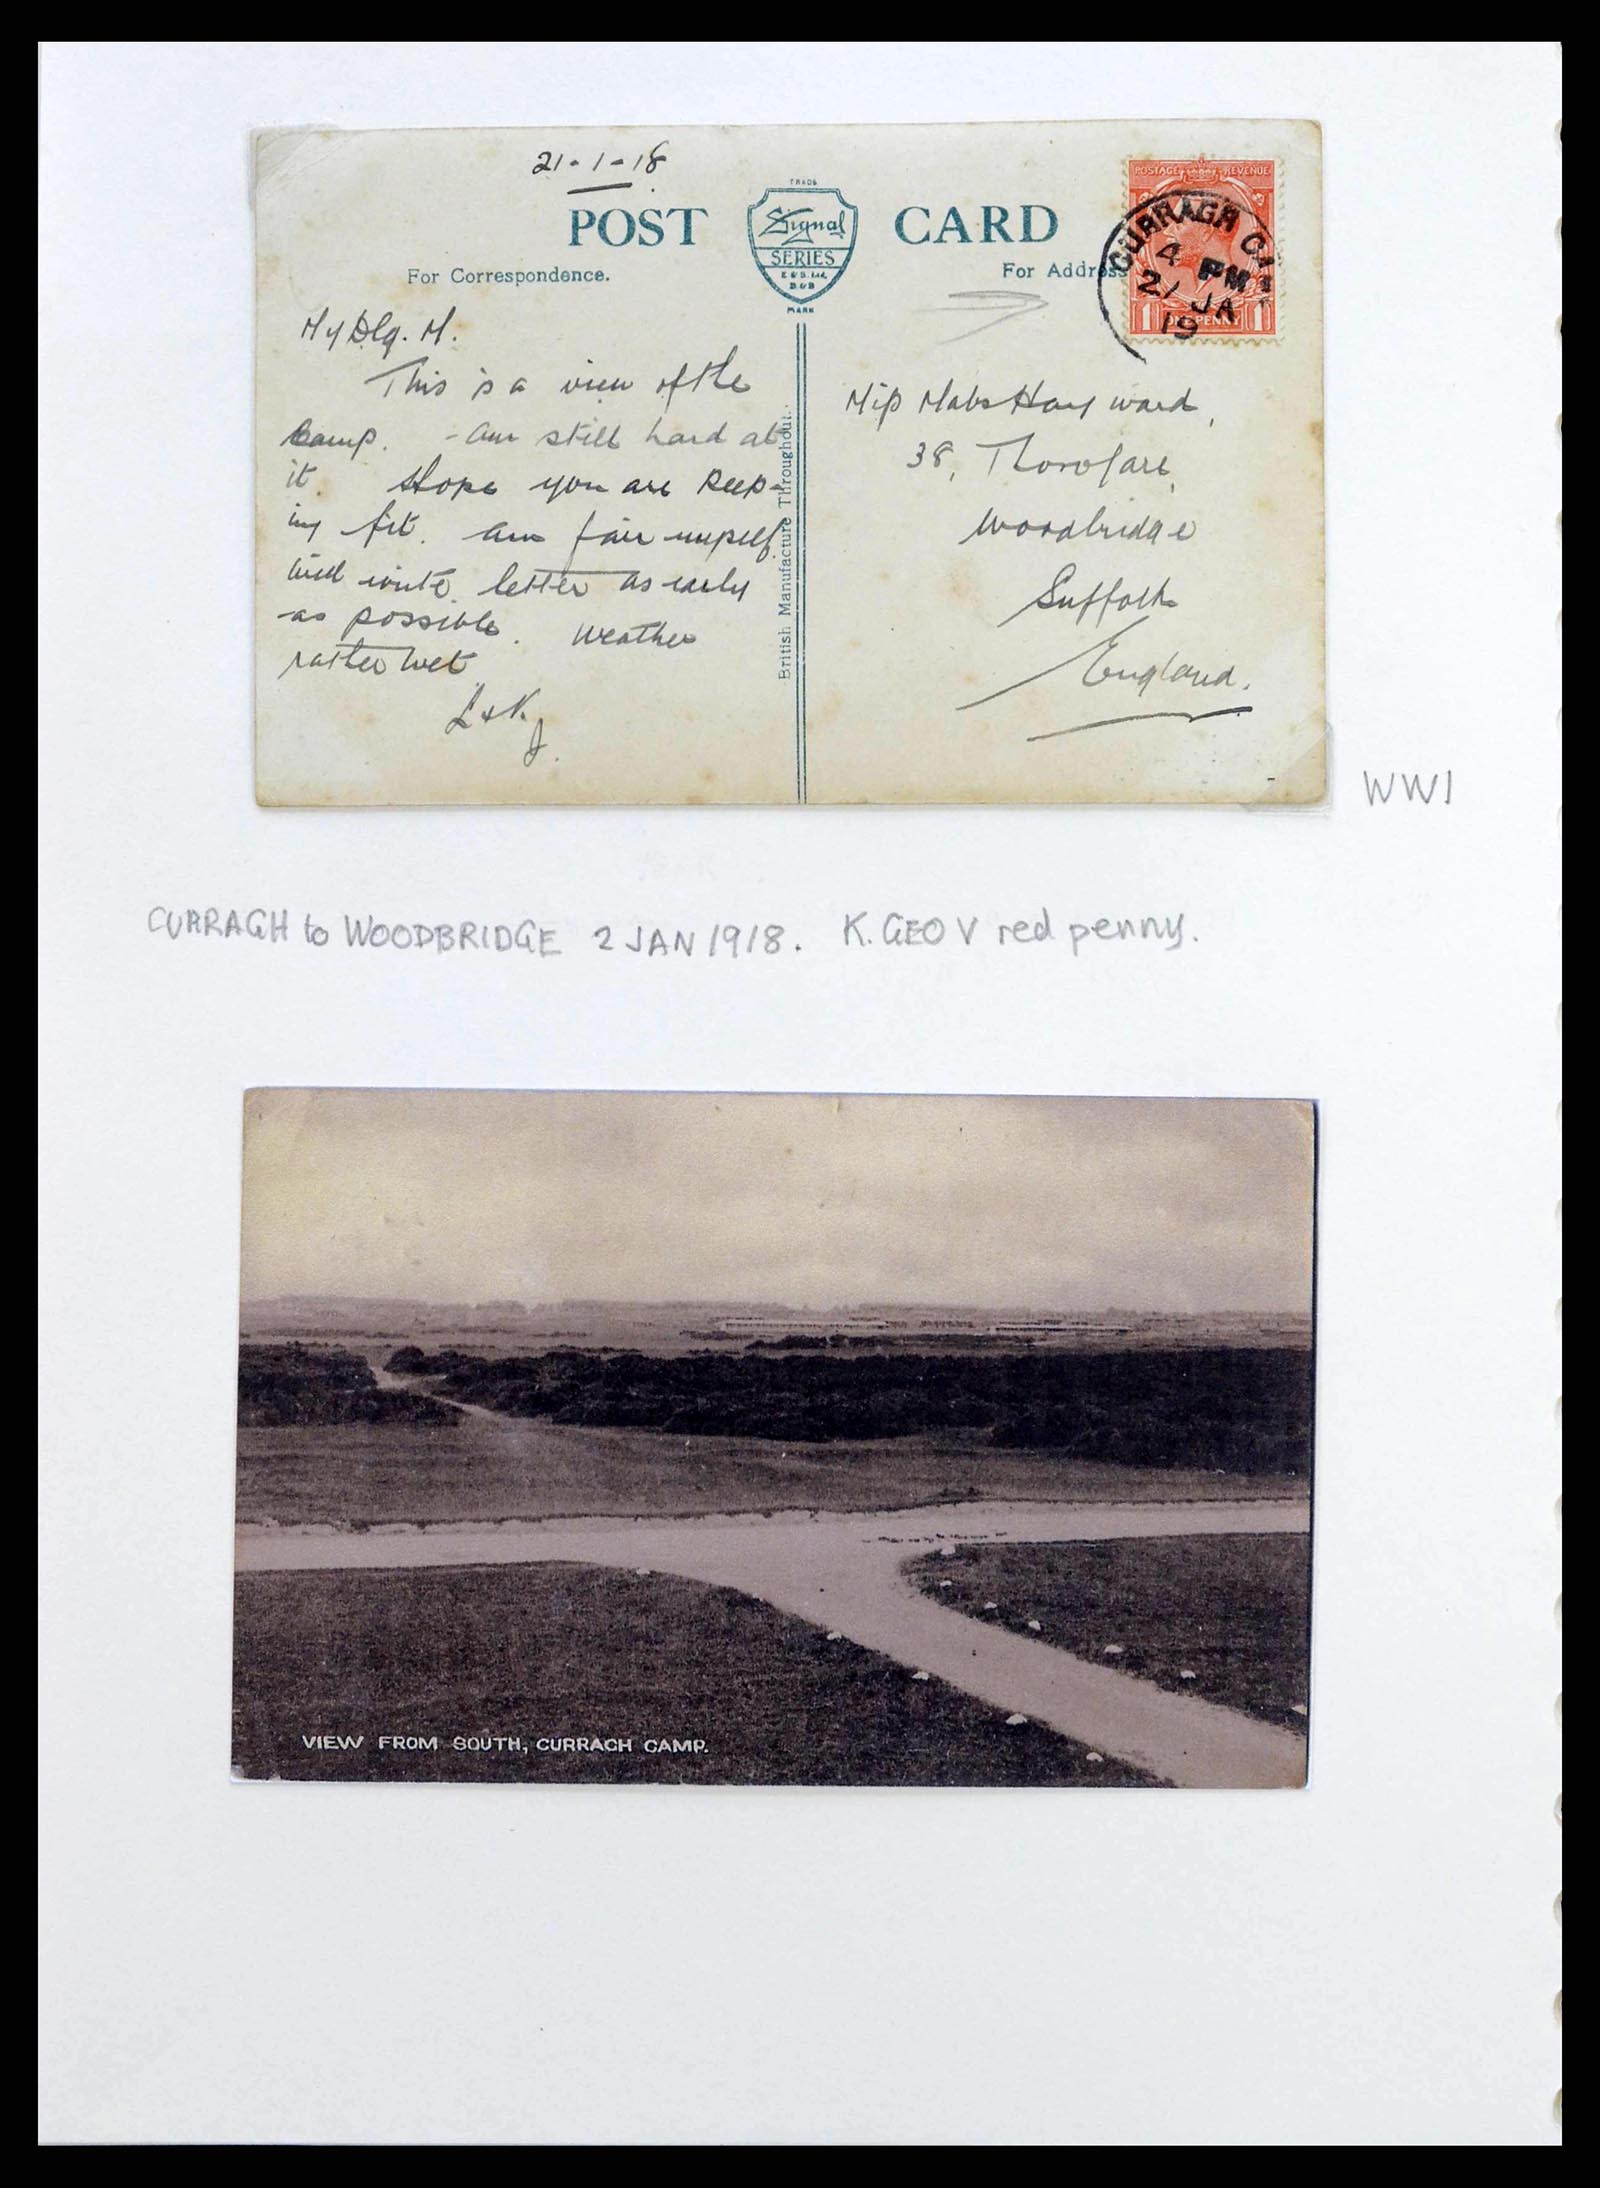 21-1-18
TRADE
POST Signal CARD
SERIES
E & S. Ltd.
D & B
MARK
For Correspondence.
For Address
POSTAGE REVENUE
CURRAGH CA
4 PM
21 JA
19
1 ONE PENNY 1
My Dlg. M.
This is a view of the
Camp. - Am still hard at
it. Hope you are keep-
ing fit. Am fair myself
Will write letter as early
as possible. Weather
rather wet
L & K.
J.
British Manufacture Throughout.
Miss Mabs Hayward,
38, Thorofare,
Woodbridge
Suffolk
England.
WW1
CURRAGH to WOODBRIDGE 2 JAN 1918. K. GEO V red penny.
VIEW FROM SOUTH, CURRAGH CAMP.